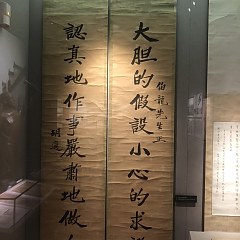 大胆的假設小心的求
伯龍先生正
認真地作事嚴肅地做
胡適